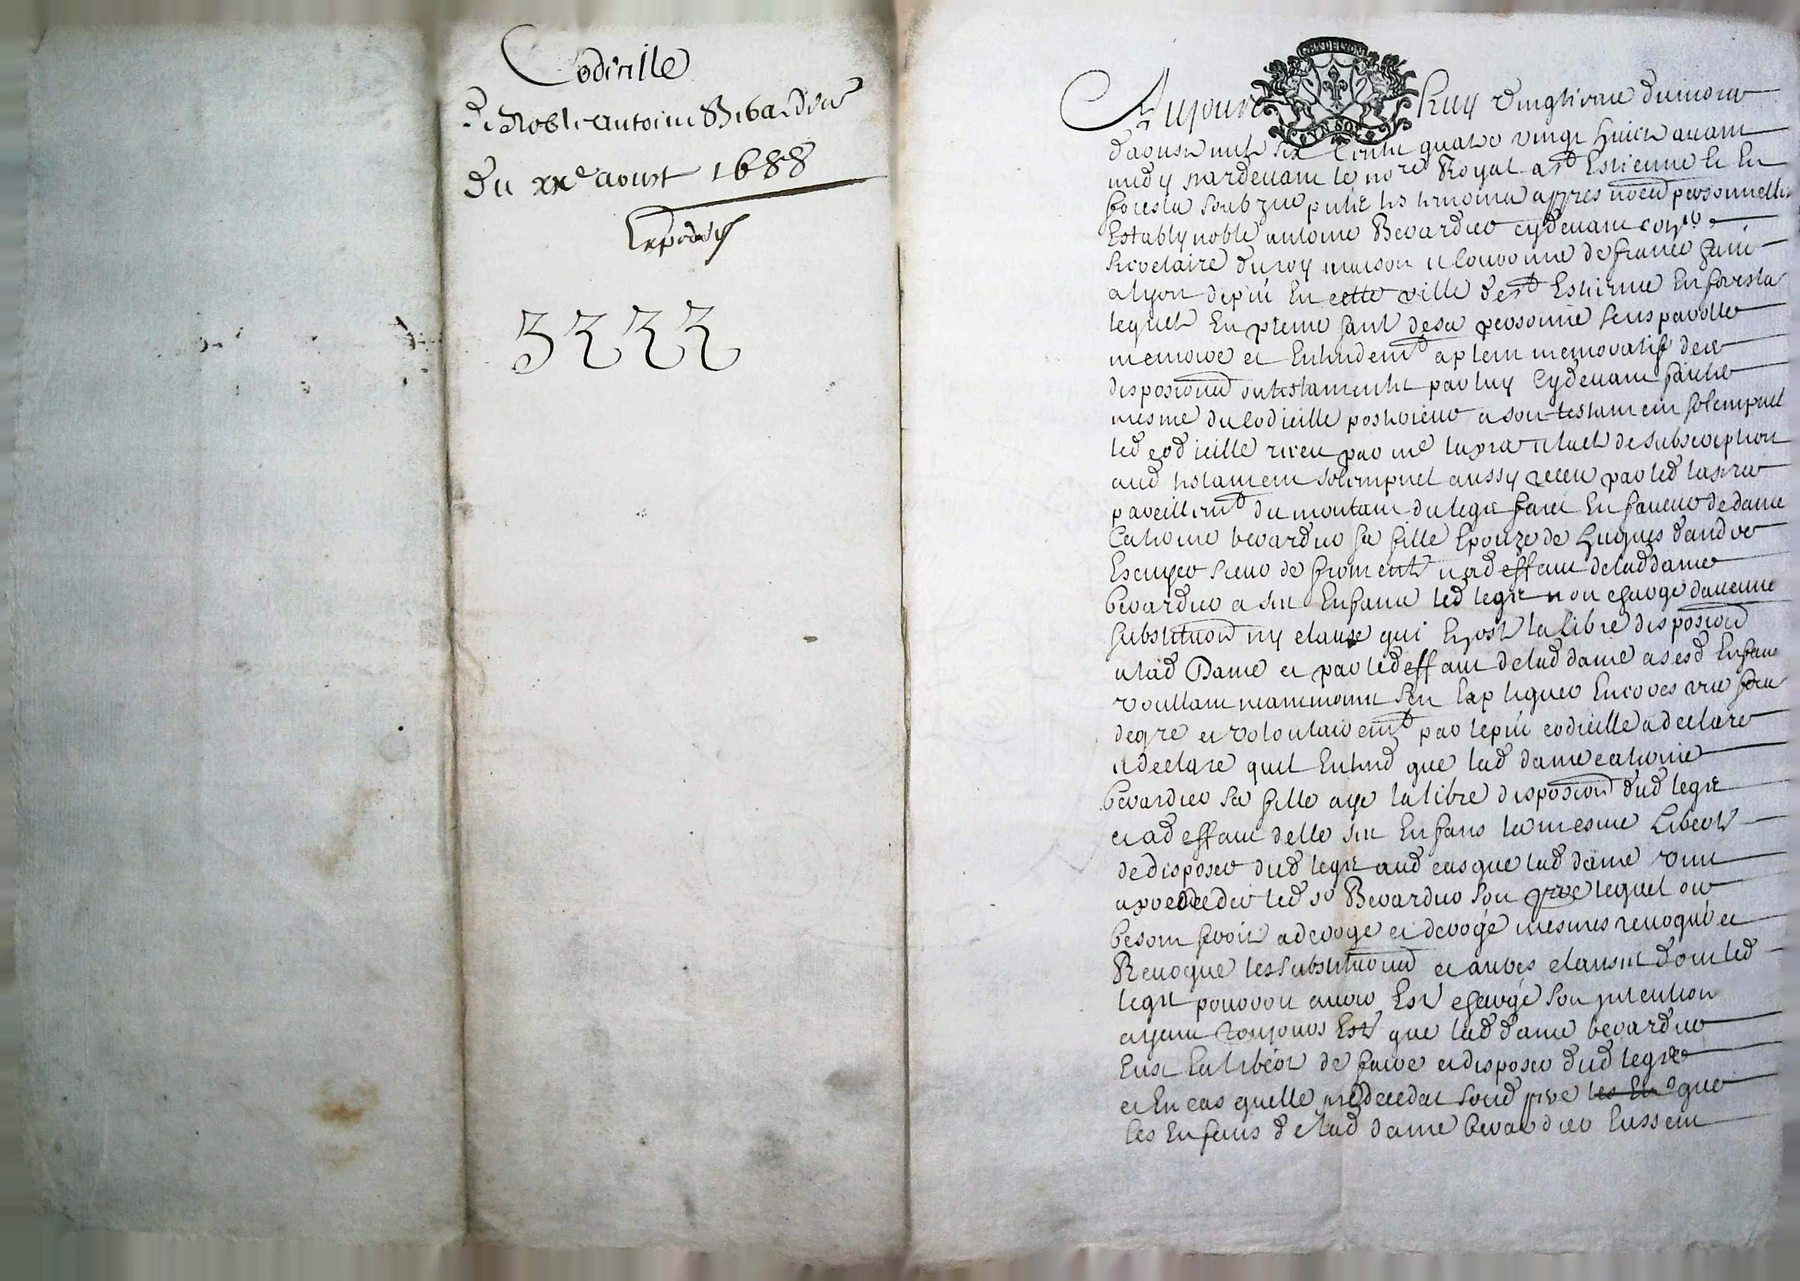 Codicille
De Noble antoine Berardier
du xxe aoust 1688
5222
GNAL DE LYON
UN SOL
Aujourdhuy vingtieme du mois
daoust mil six Cents quatre vingt huict avant
midy pardevant le nore Royal a st Estienne le en
forests soubzne pnts les tesmoins appres només personnelle
Estably noble antoine Berardier cydevant conler
Secretaire du roy maison et Couronne de france
a lyon depnt En cette ville de st Estienne En forests
lequel En pleine santé de sa personne sens parolle
memoire et Entendemt a plein memoratif de ce
disposiond ou testaments par luy Cydevant faicts
mesme du Codicille posterieur a son testament solempnel
led codicille receu par me lapra acte de subscription
aud testament solempnel aussy receu par led lapra
pareillemt du montant du legat faict En faveur de dame
Catherine berardier sa fille Epouze de hugues dandre
Escuyer sieur de froments et a deffaut de lad dame
berardier a ses Enfants led legat non charge daucune
substitution ny clause qui la libre disposiond
a lad Dame et par led deffaut de lad dame a sesd Enfans
voullant maintenant sen Expliquer Encores
degre et volontairemt par le pnt codicille a declaré
et declare quil Entend que lad dame catherine
berardier sa fille aye la libre disposiond dud legat
et a deffaut delle ses Enfans la mesme Liberté
de disposer dud legat aud cas que lad dame vint
a predeceder led sr Berardier son pere lequel ou
besoin seroit a deroge et deroge mesmes revoqué et
Revoque les substitutiond et autres clauses dont led
legat pourroit avoir Esté chargé son intention
ayant toujours Esté que lad dame berardier
Eust la liberté de faire et disposer dud legat
et En cas quelle predecedat sond pere les En que
les Enfans de lad dame berardier Eussent